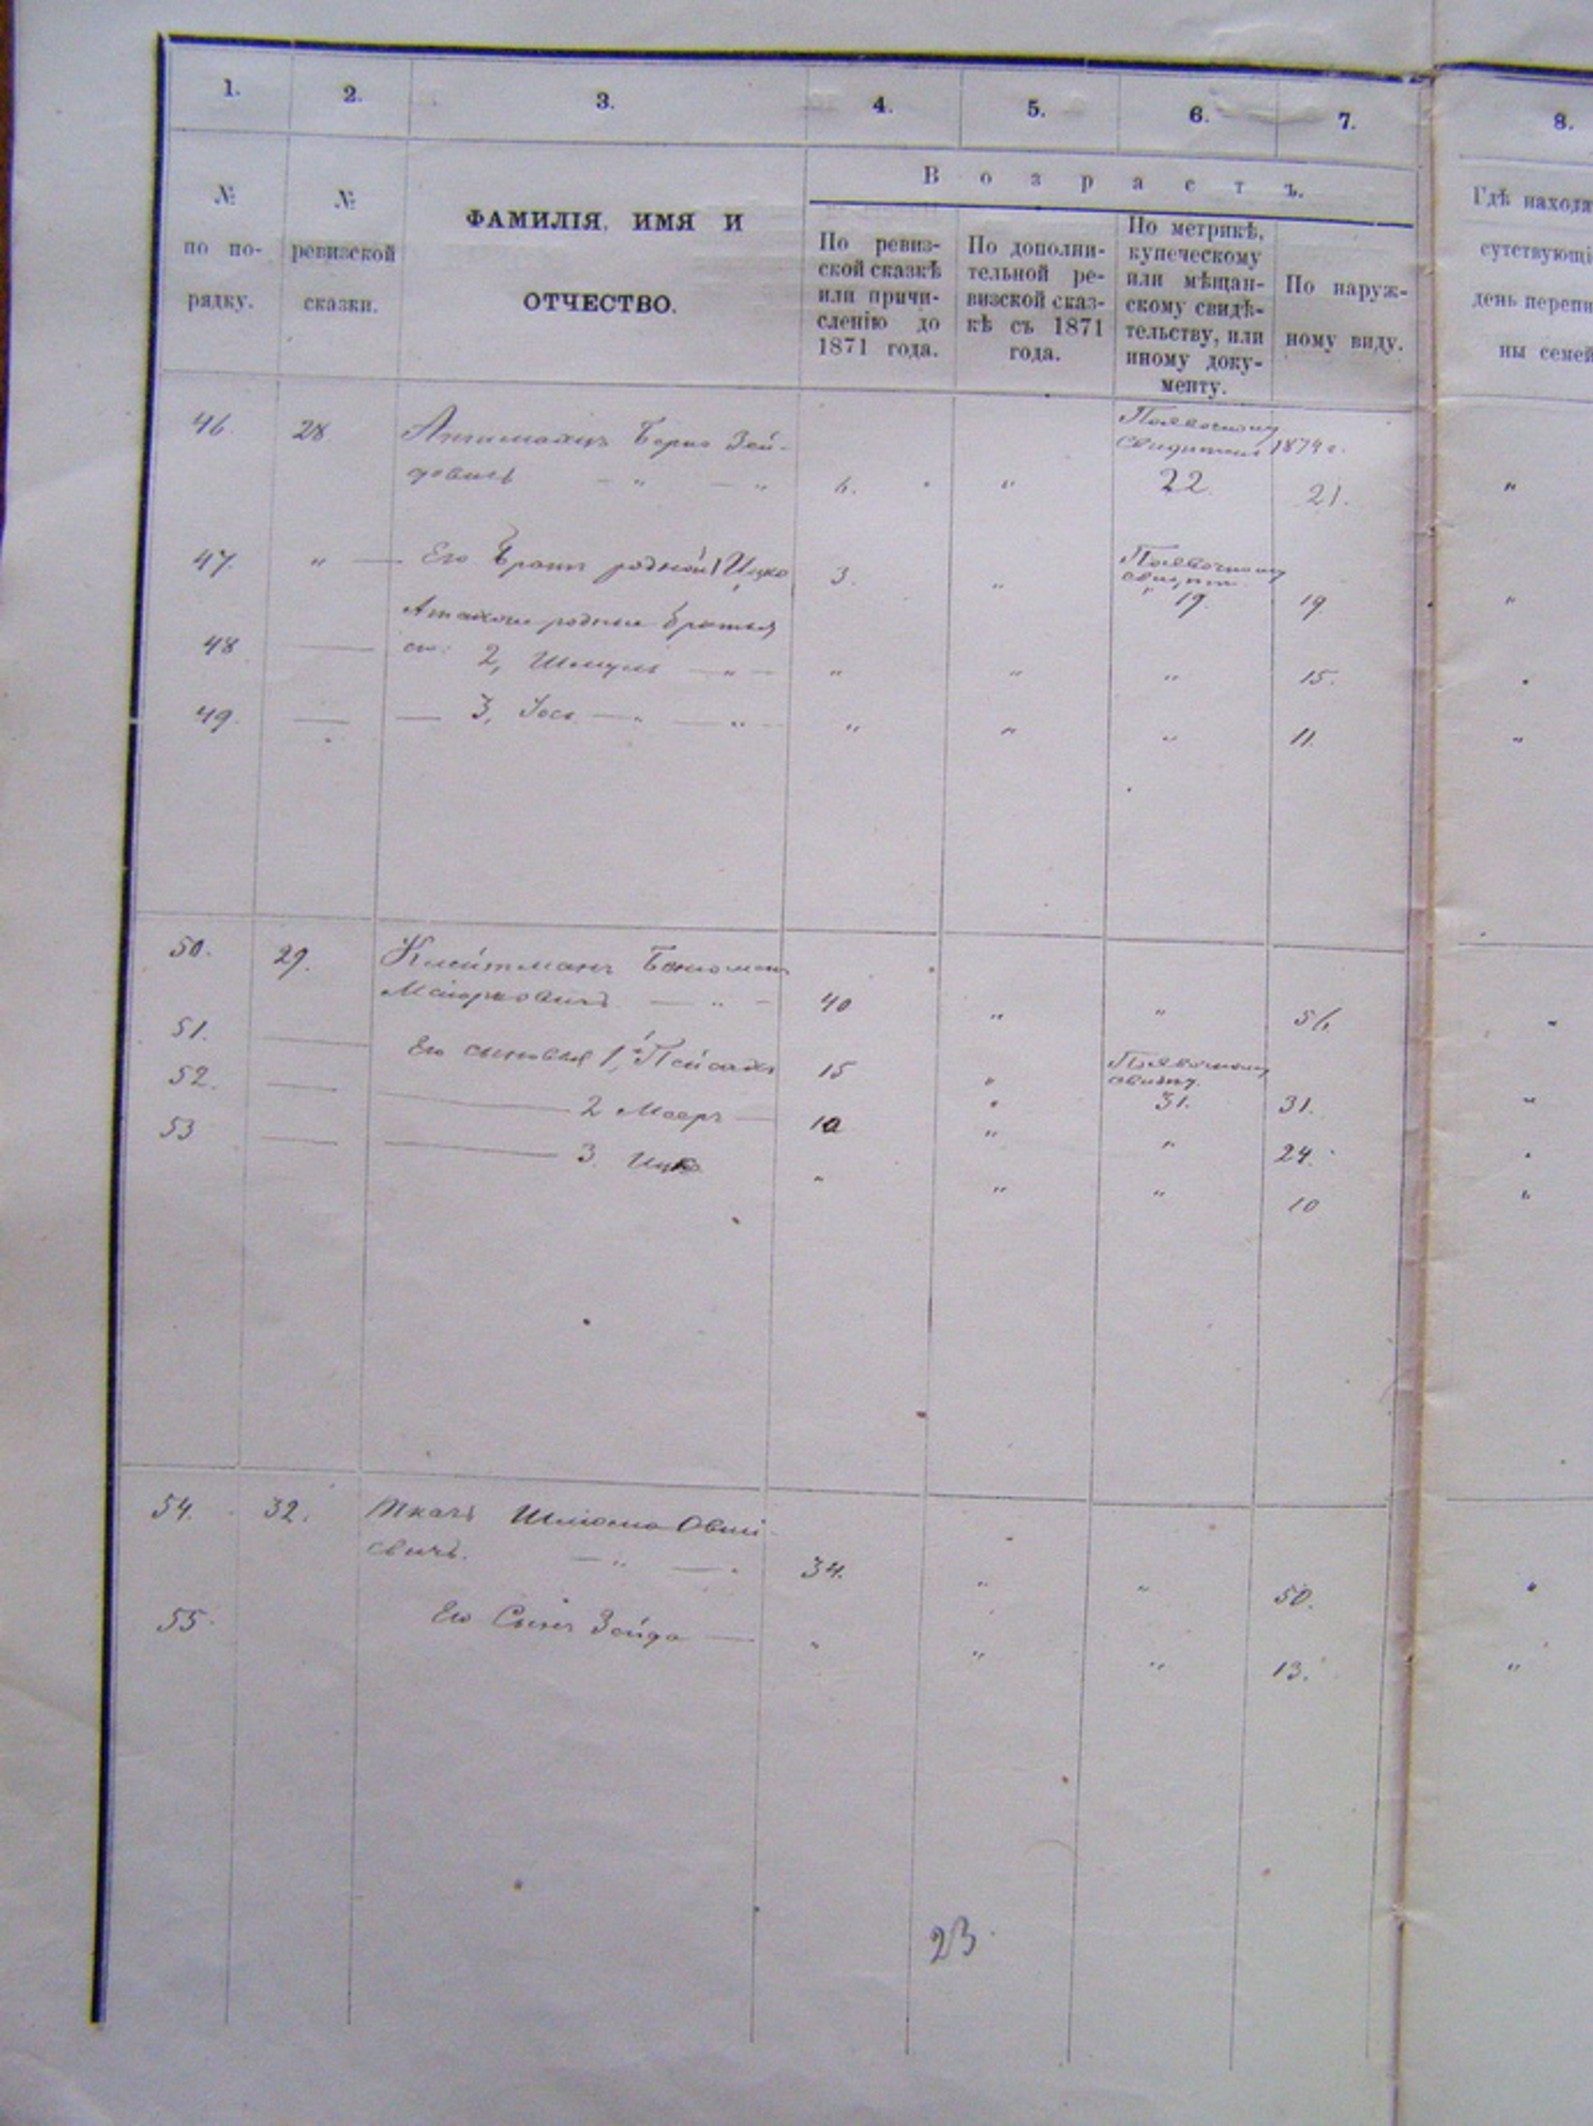 1. 2. 3. 4. 5. 6. 7. 8.
№ по порядку.
№ ревизской сказки.
ФАМИЛІЯ, ИМЯ И
ОТЧЕСТВО.
Возрастъ.
По ревиз-
ской сказкѣ
или причи-
сленію до
1871 года.
По дополни-
тельной ре-
визской сказ-
кѣ съ 1871
года.
По метрикѣ,
купеческому
или мѣщан-
скому свидѣ-
тельству, или
иному доку-
менту.
По наруж-
ному виду.
Гдѣ находя
сутствующі
день перепи
ны семей
46 28 Берко Зей-
довичъ — " — " 6. " 1874 г. 22. 21. "
47. " — Его Братъ родной 1 Ицко 3. " 19. 19 "
родные братья
48 — 2, Шмуль — " — " " " 15. "
49. — — 3, Іос — " — " " " " 11. "
50. 29. Клейтманъ
Маіорковичъ — " — 40 " " 56. "
51. — Его сыновья 1, Пейсахъ 15 " 31. 31. "
52. — — 2 Мееръ — 10 " " 24. "
53 — — 3. Ицко " " " 10 "
54. 32. Ткачъ Шлиома Овші-
евичъ. — " — " 34. " " 50. "
55. Его Сынъ Зейда — " " " 13. "
23